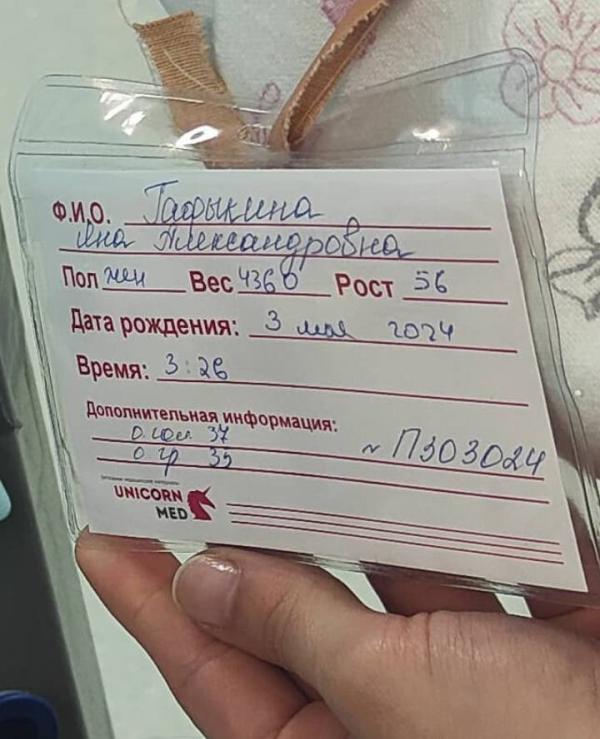 Ф.И.О. Гафыкина
Яна Александровна
Пол жен Вес 4360 Рост 56
Дата рождения: 3 мая 2024
Время: 3:26
Дополнительная информация:
о. гол. 37
о гр 35 ~ П303024
UNICORN
MED